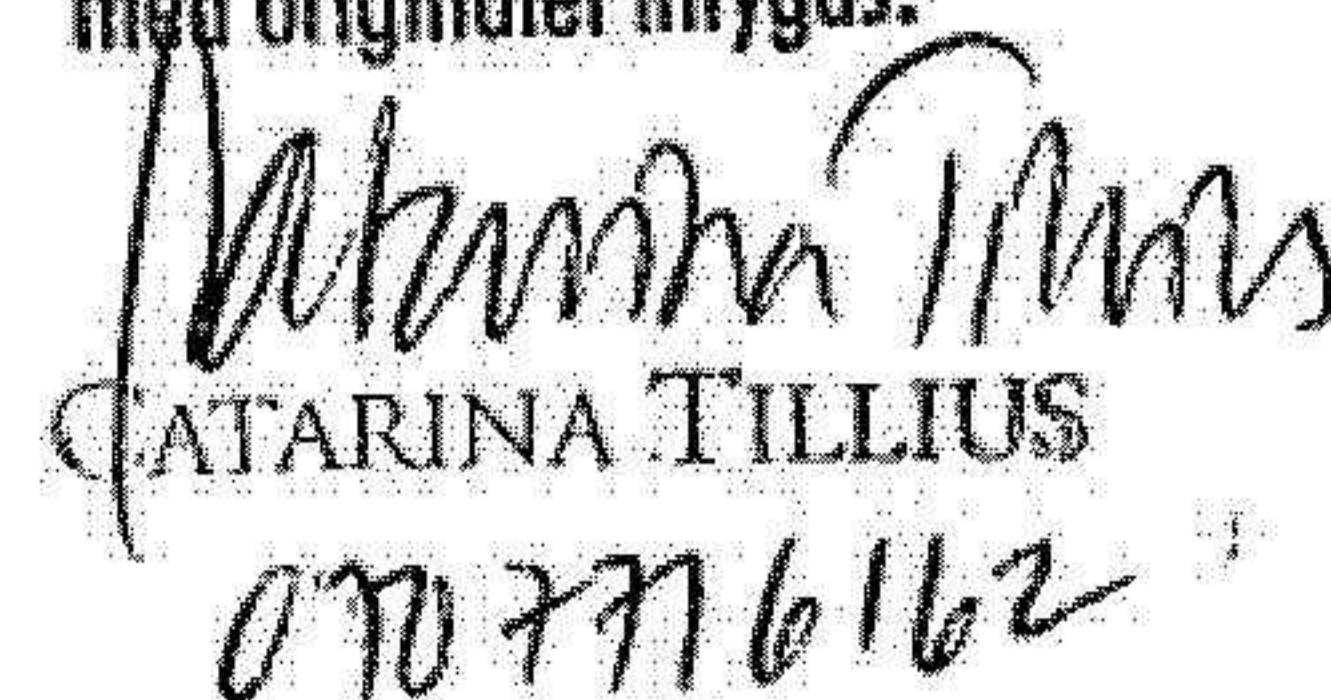 med originalet intygas:
Catarina Tillius
CATARINA TILLIUS
070 777 6162